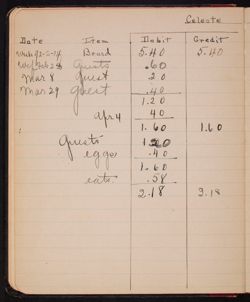 Celeste
Date Item Debit Credit
Board 5.40 5.40
Guests .60
Mar 8 Guest .20
Mar 29 Guest .40
1.20
Apr 4 40
1.60 1.60
Guests
eggs .40
1.60
eats. .58
2.18 2.18